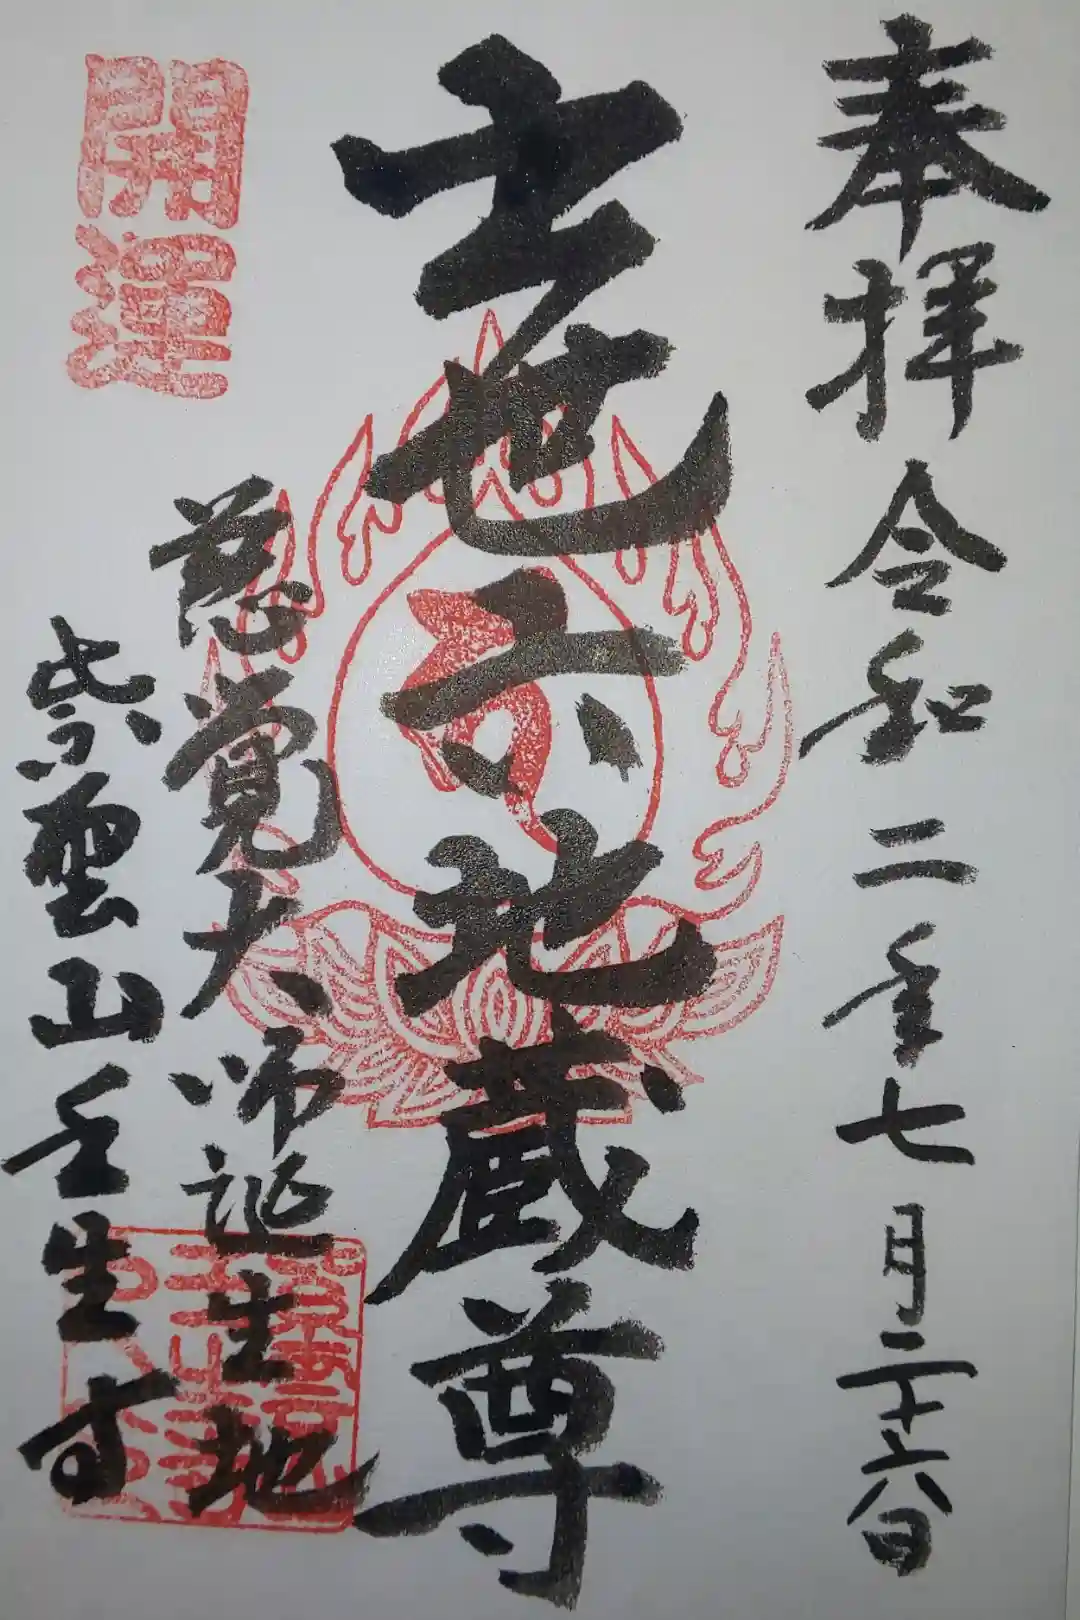 奉拝 令和二年七月二十六日
世六地蔵尊
開運
慈覚大師誕生地
紫雲山壬生寺